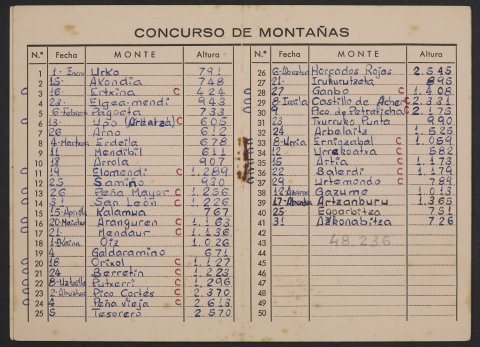 CONCURSO DE MONTAÑAS
N.º Fecha MONTE Altura
1 1- Enero Urko 791
2 15- Akondia 748
3 16 Ertxina C 424
4 23- Elgea-mendi 943
5 6-Febrero Pagoeta 733
6 Uso C 605
7 26 Arno 612
8 4- Erdella 678
9 11 Mendibil 611
10 18 Arrola 907
11 19 Elomendi C 1.289
12 25 Samiño 930
13 26 Peña Mayor C 1.256
14 31 San León C 1.226
15 Kalamua 767
16 Aranguren C 1.163
17 21- Mendaur C 1.136
18 Oiz 1.026
19 4 Galdaramiño 671
20 18 Orixol C 1.127
21 24 Berretin C 1.223
22 Putxarri C 1.296
23 Pico Cortés C 2.370
24 4 Peña Vieja C 2.613
25 5 Tesorero 2.570
N.º Fecha MONTE Altura
26 Horcados Rojos 2.545
27 21- Irukurutzeta 895
28 27 Ganbo C 1.408
29 Castillo de Acher C 2.331
30 9 Pico de Petraficha C 2.175
31 23 Txurruko Punta 990
32 24 Arbelaitz 1.525
33 8-Urria Erniozabal C 1.059
34 12 Urrekoatxa 582
35 15 Artia C 1.173
36 22 Balerdi C 1.179
37 29 Urtemondo C 789
38 Gazume 1.013
39 Artzanburu 1.365
40 25 Egoarbitza 751
41 31 Azkonabitza 726
42
43 48.236
44
45
46
47
48
49
50